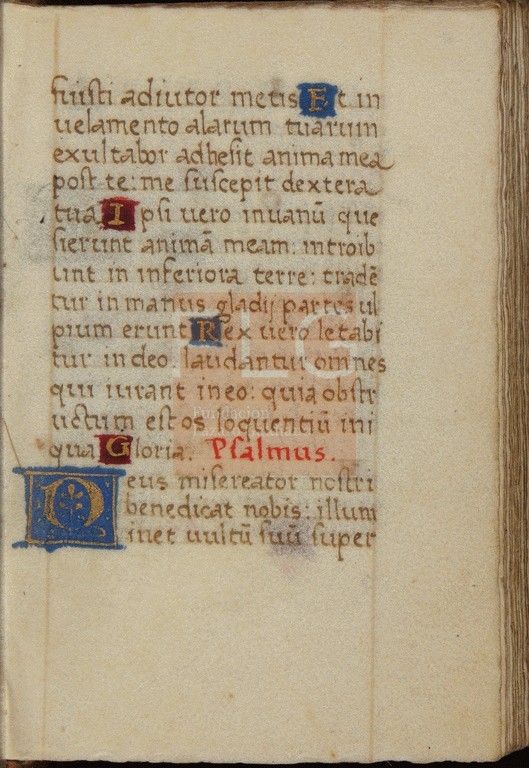 fuisti adiutor meus Et in
velamento alarum tuarum
exultabor adhesit anima mea
post te: me suscepit dextera
tua Ipsi vero invanū que
sierunt animā meam: introib
unt in inferiora terre: tradē
tur in manus gladij partes ul
pium erunt Rex vero letabi
tur in deo laudantur omnes
qui iurant in eo: quia obstr
uctum est os loquentiū ini
qua Gloria. Psalmus.
Deus misereator nostri
benedicat nobis: illum
inet vultū suū super
FLG
Fundación